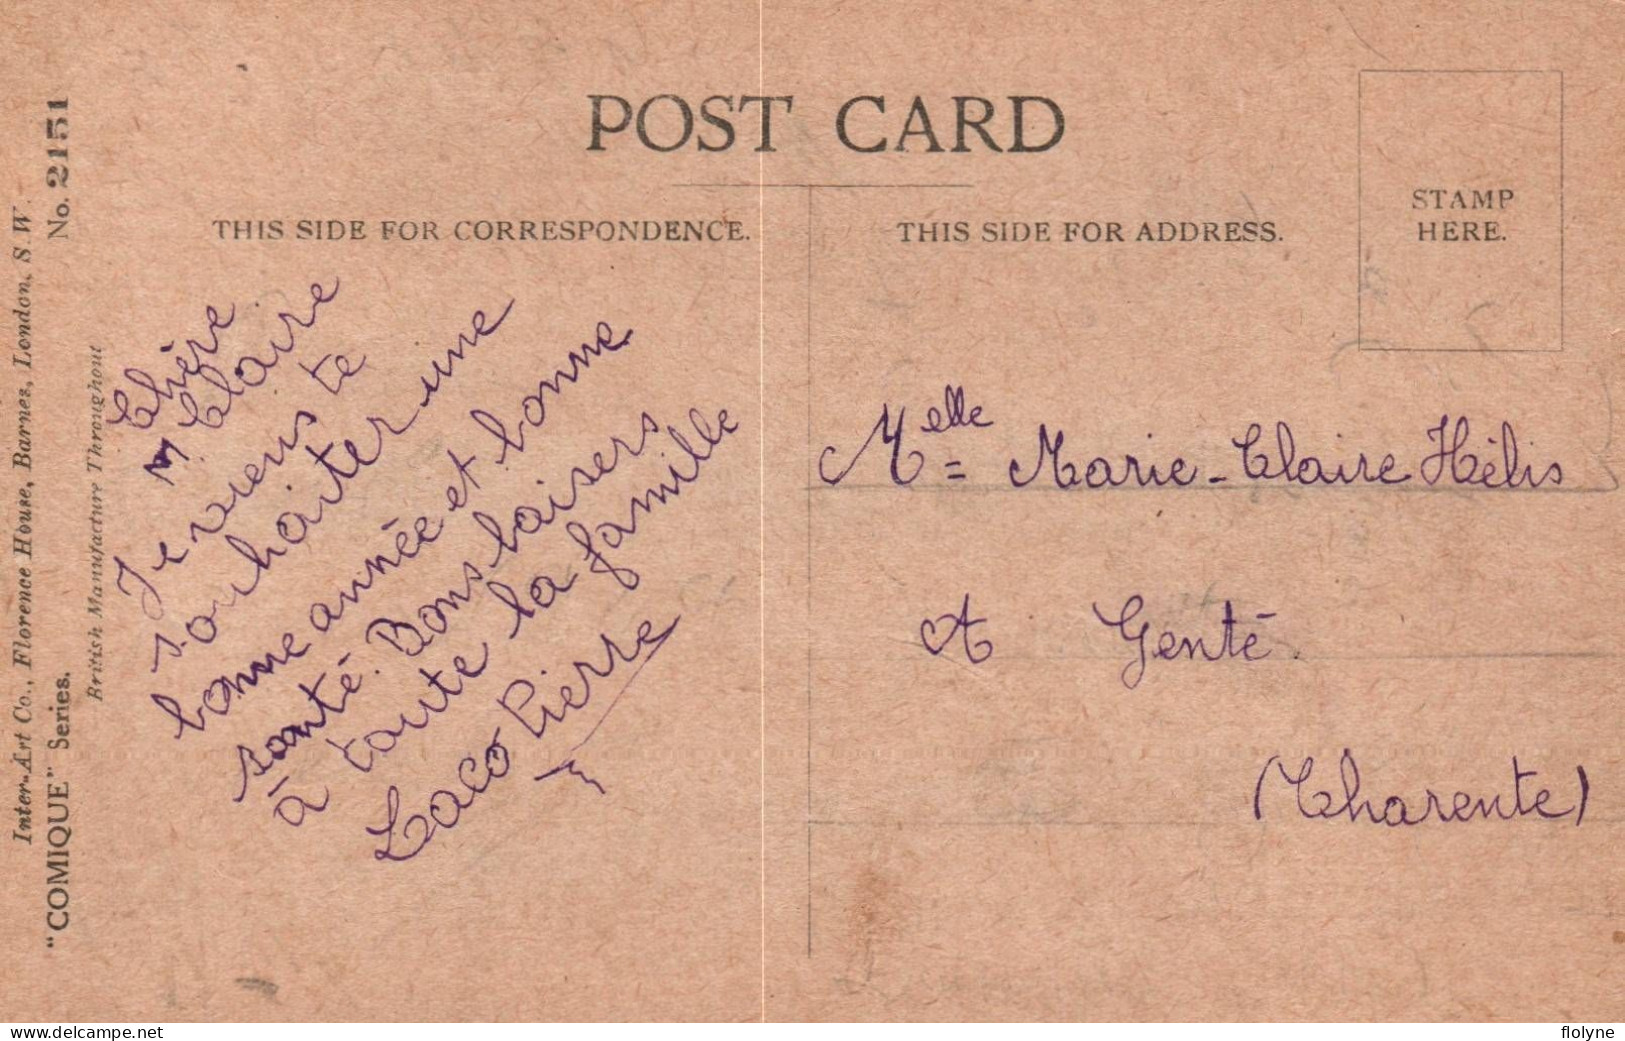 POST CARD
THIS SIDE FOR CORRESPONDENCE.
THIS SIDE FOR ADDRESS.
STAMP
HERE.
Inter-Art Co., Florence House, Barnes, London, S.W.
"COMIQUE" Series.
No. 2151
British Manufacture Throughout
Chère
M Claire
Je viens te
souhaiter une
bonne année et bonne
santé. Bons baisers
à toute la famille
Laco Pierre
Melle = Marie-Claire Hélis
A Genté
(Charente)
www.delcampe.net
flolyne